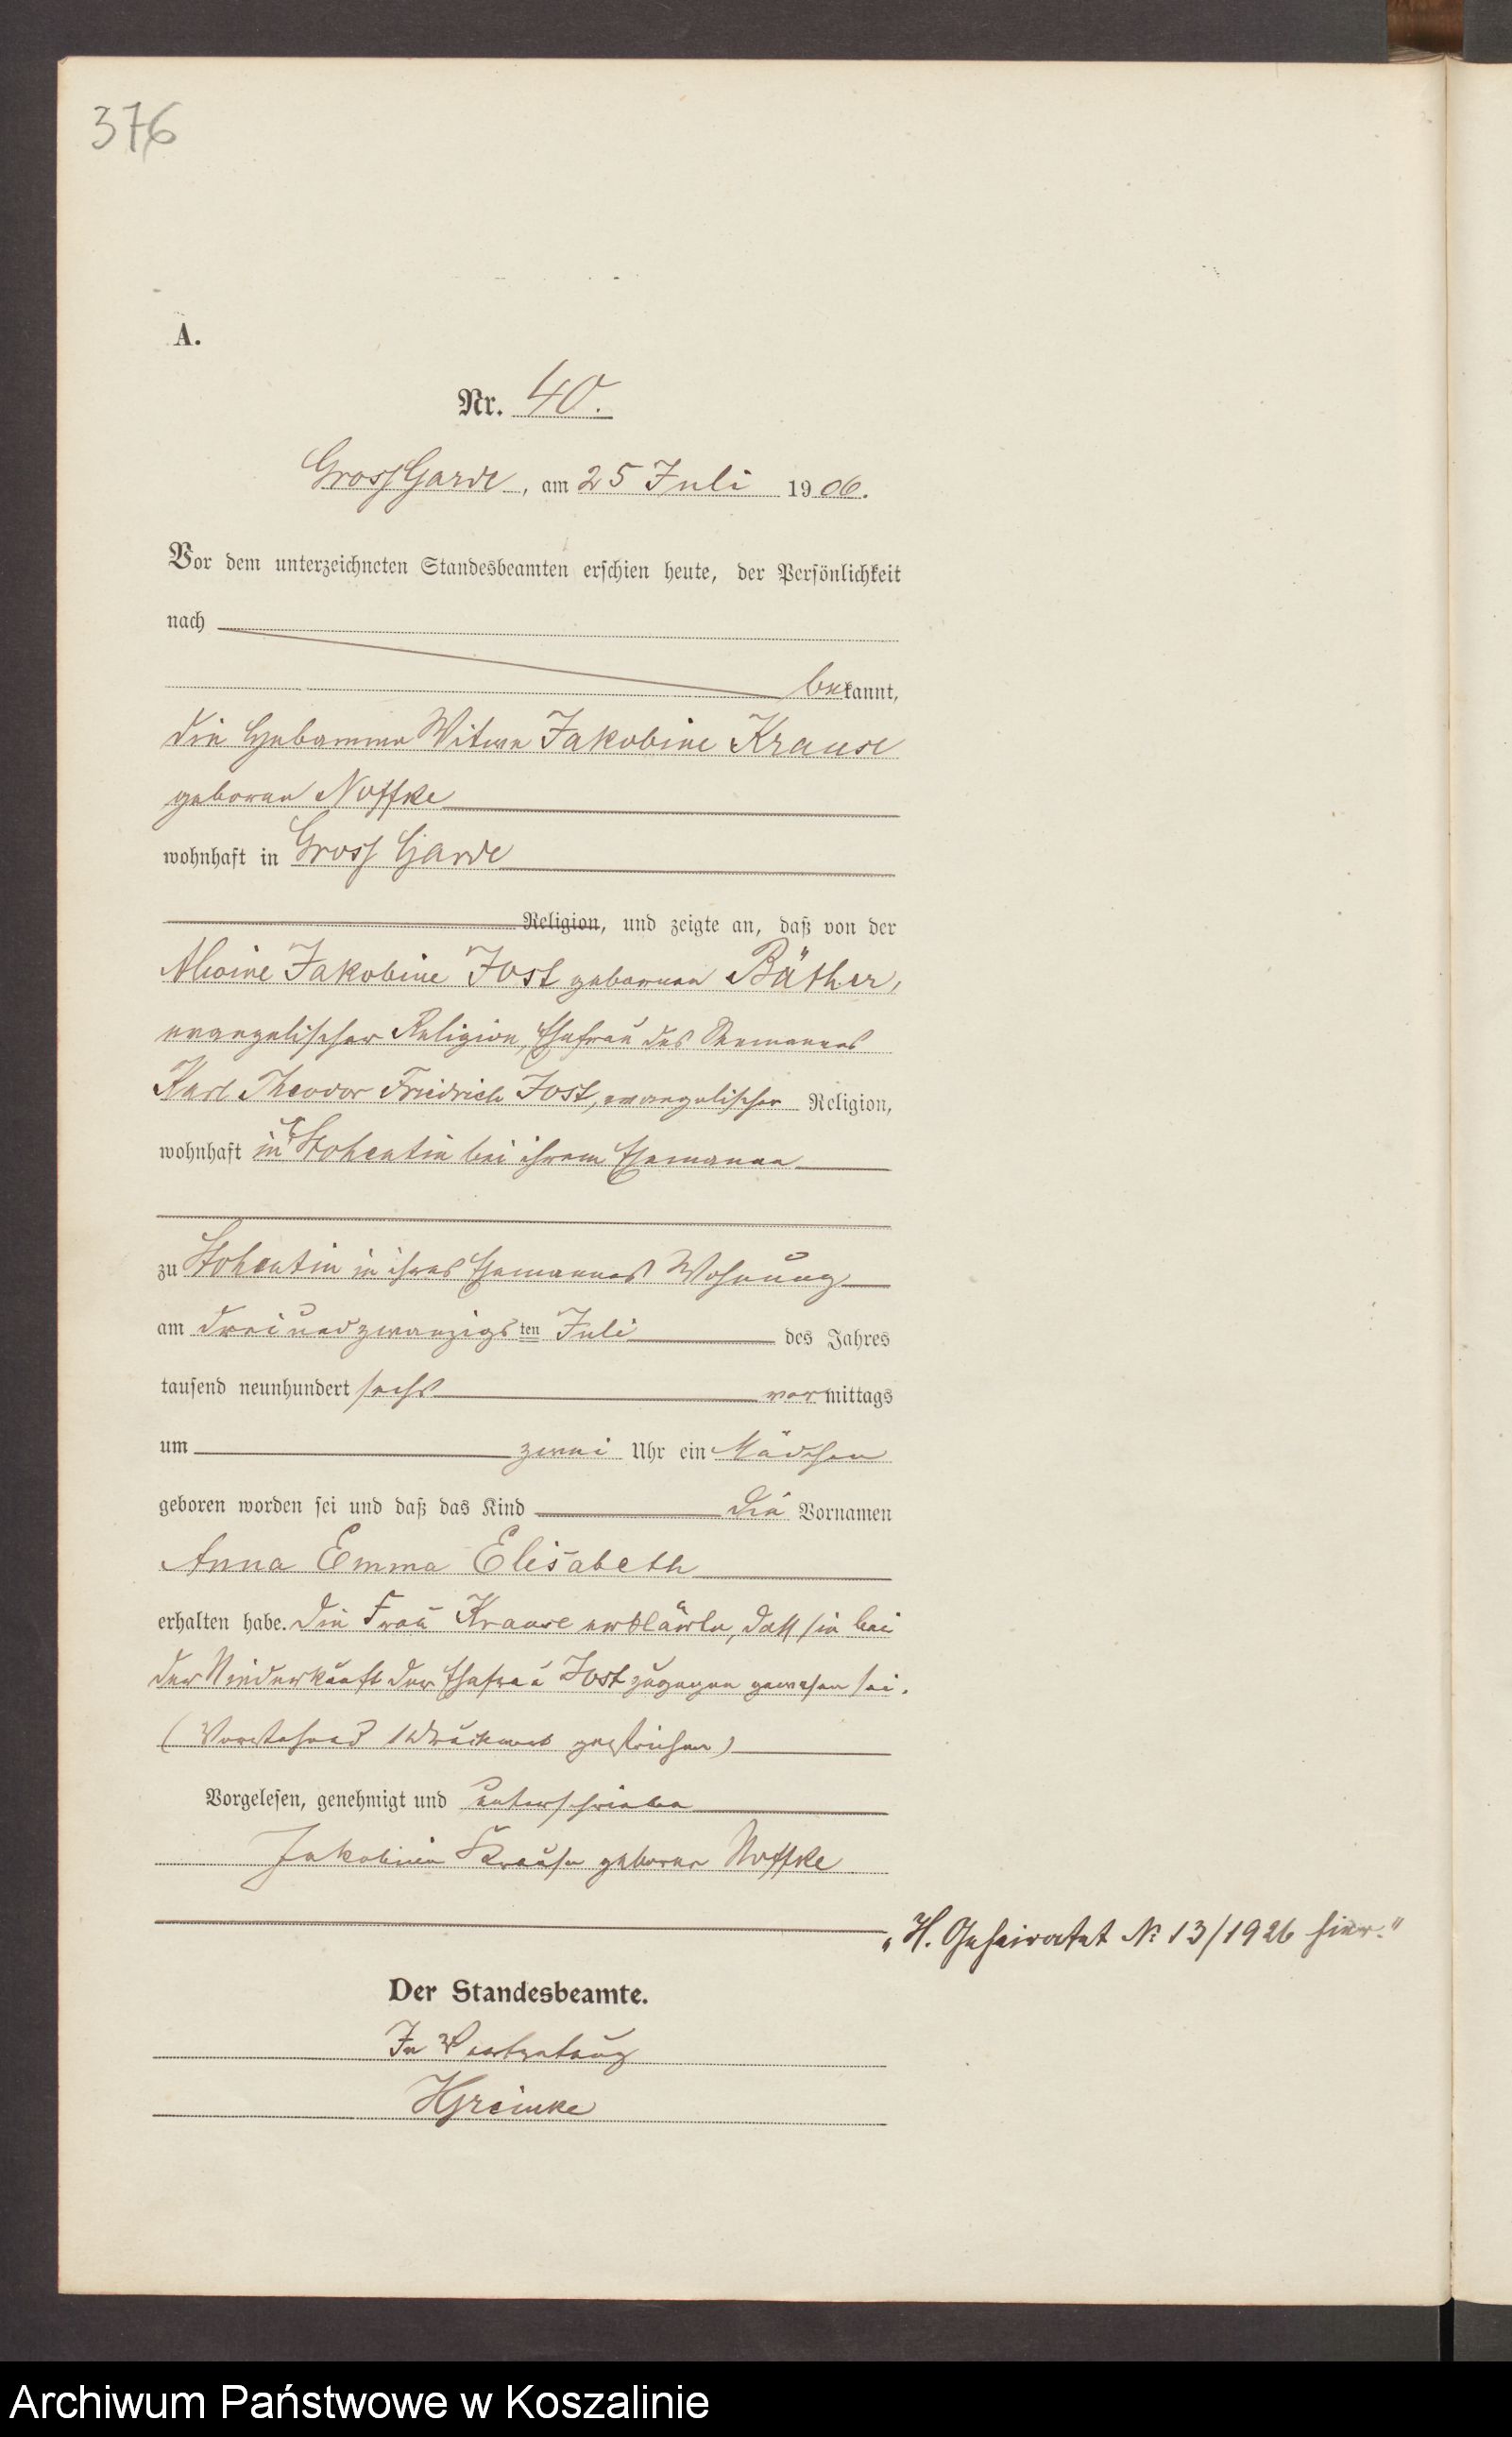 376
A.
Nr. 40.
Gross Garde, am 25 Juli 1906.
Vor dem unterzeichneten Standesbeamten erschien heute, der Persönlichkeit
nach
bekannt,
die Hebamme Witwe Jakobine Krause
geborne Noffke
wohnhaft in Gross Garde
Religion, und zeigte an, daß von der
Alwine Jakobine Jost gebornen Bäther,
evangelischer Religion, Ehefrau des Seemannes
Karl Theodor Friedrich Jost, evangelischer Religion,
wohnhaft in Stohentin bei ihrem Ehemanne
zu Stohentin in ihres Ehemannes Wohnung
am dreiundzwanzigsten Juli des Jahres
tausend neunhundert sechs vormittags
um zwei Uhr ein Mädchen
geboren worden sei und daß das Kind die Vornamen
Anna Emma Elisabeth
erhalten habe. Die Frau Krause erklärte, daß sie bei
der Niederkunft der Ehefrau Jost zugegen gewesen sei.
(Vorstehend 1 Druckwort gestrichen)
Vorgelesen, genehmigt und unterschrieben
Jakobine Krause geborne Noffke
„H. Geheiratet № 13/1926 hier."
Der Standesbeamte.
In Vertretung
HGreinke
Archiwum Państwowe w Koszalinie